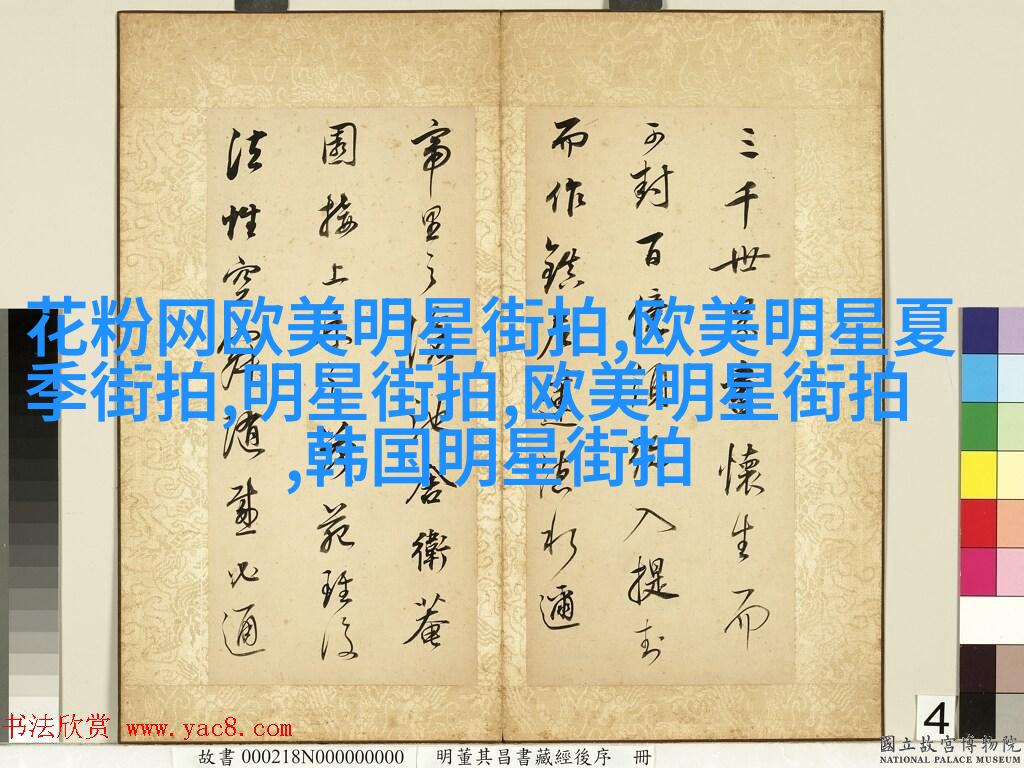 花粉网欧美明星街拍,欧美明星夏
季街拍,明星街拍,欧美明星街拍
,韩国明星街拍
三千世懷生而
可封百億入提封
而作鎮
舍衛菴
園接上苑
法性空隨感必通
4
书法欣赏 www.yac8.com
故書 000218N000000000 明董其昌書藏經後序 冊
國立故宮博物院
NATIONAL PALACE MUSEUM